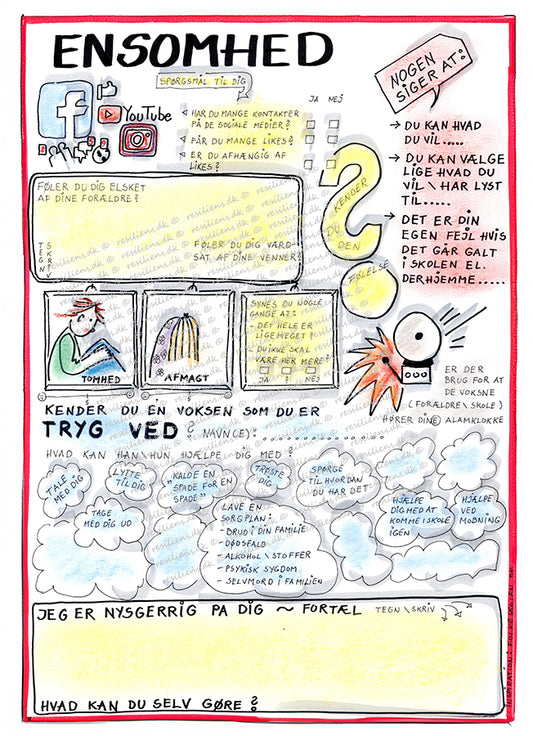 ENSOMHED
SPØRGSMÅL TIL DIG
JA NEJ
YouTube
HAR DU MANGE KONTAKTER
PÅ DE SOCIALE MEDIER?
FÅR DU MANGE LIKES?
ER DU AFHÆNGIG AF
LIKES?
NOGEN
SIGER AT:
DU KAN HVAD
DU VIL.....
DU KAN VÆLGE
LIGE HVAD DU
VIL \ HAR LYST
TIL.....
DET ER DIN
EGEN FEJL HVIS
DET GÅR GALT
I SKOLEN EL.
DERHJEMME.....
KENDER
DU
DEN
FØLELSE
FØLER DU DIG ELSKET
AF DINE FORÆLDRE?
TEGN
SKRIV
FØLER DU DIG VÆRD-
SAT AF DINE VENNER?
TOMHED
AFMAGT
SYNES DU NOGLE
GANGE AT:
- DET HELE ER
LIGEMEGET?
- DU IKKE SKAL
VÆRE HER MERE?
JA ? NEJ
ER DER
BRUG FOR AT
DE VOKSNE
(FORÆLDREN \ SKOLE)
HØRER DIN(E) ALAMKLOKKE
KENDER DU EN VOKSEN SOM DU ER
TRYG VED ? NAVN(E):
HVAD KAN HAN\HUN HJÆLPE DIG MED?
TALE
MED DIG
LYTTE
TIL DIG
"KALDE EN
SPADE FOR EN
SPADE"
TRØSTE
DIG
SPØRGE
TIL HVORDAN
DU HAR DET
TAGE
MED DIG UD
LAVE EN
SORGPLAN:
- BRUD I DIN FAMILIE
- DØDSFALD
- ALKOHOL \ STOFFER
- PSYKISK SYGDOM
- SELVMORD I FAMILIEN
HJÆLPE
DIG MED AT
KOMME I SKOLE
IGEN
HJÆLPE
VED
MOBNING
JEG ER NYSGERRIG PA DIG ~ FORTÆL TEGN \ SKRIV
HVAD KAN DU SELV GØRE?
resiliens.dk ©